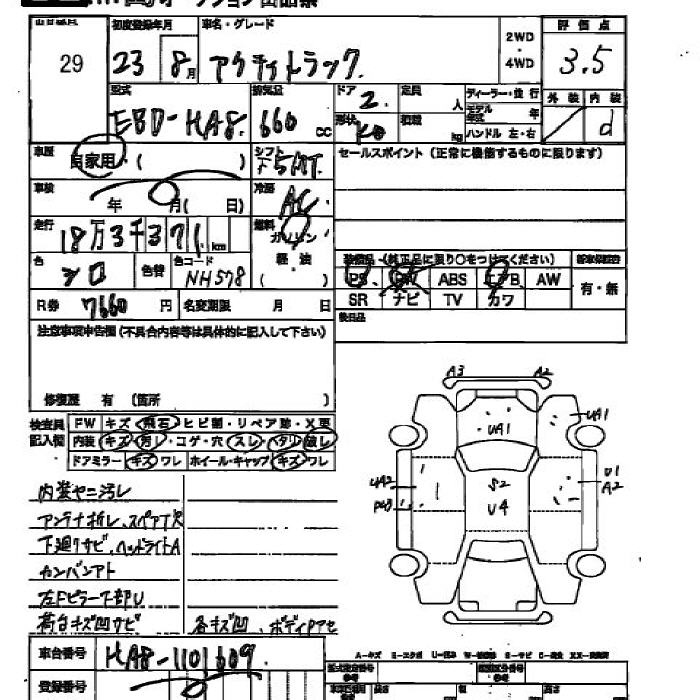 29
初度登録年月 車名・グレード
23 8月 アクティトラック
2WD・4WD
評価点
3.5
型式 排気量 ドア 定員 人 ディーラー・並行
EBD-HA8 660 cc 2
形状 積載 kg モデル年式 年
ハンドル 左・右
外装 内装
d
車歴 自家用・( ) シフト 5MT
セールスポイント (正常に機能するものに限ります)
車検 年 月( 日) 冷房 AC
走行 18万3千371 km 燃料 ガソリン 軽油 ( )
色 シロ 色替 色コード NH578
装備品 (純正品に限り○をつけてください)
PS PW ABS エアB AW 有・無
SR ナビ TV カワ
R券 7660円 名変期限 月 日
後日品
注意事項申告欄(不具合内容等は具体的に記入して下さい)
修復歴 有 (箇所 )
検査員記入欄
FW キズ 飛石 ヒビ割・リペア跡・X要
内装 キズ 汚レ・コゲ・穴 スレ ヘタリ 破レ
ドアミラー キズ ワレ ホイール・キャップ キズ ワレ
内装ヤニ汚レ
アンテナ折レ、スペアTR
下廻リサビ、ヘッドライトA
カンバンアト
左Fピラー下部U
荷台キズ凹サビ 各キズ凹、ボディPアセ
A3 A2
UA1 UA1
UA2 S2 U4 U1 A2
車台番号 HA8-1101609
登録番号